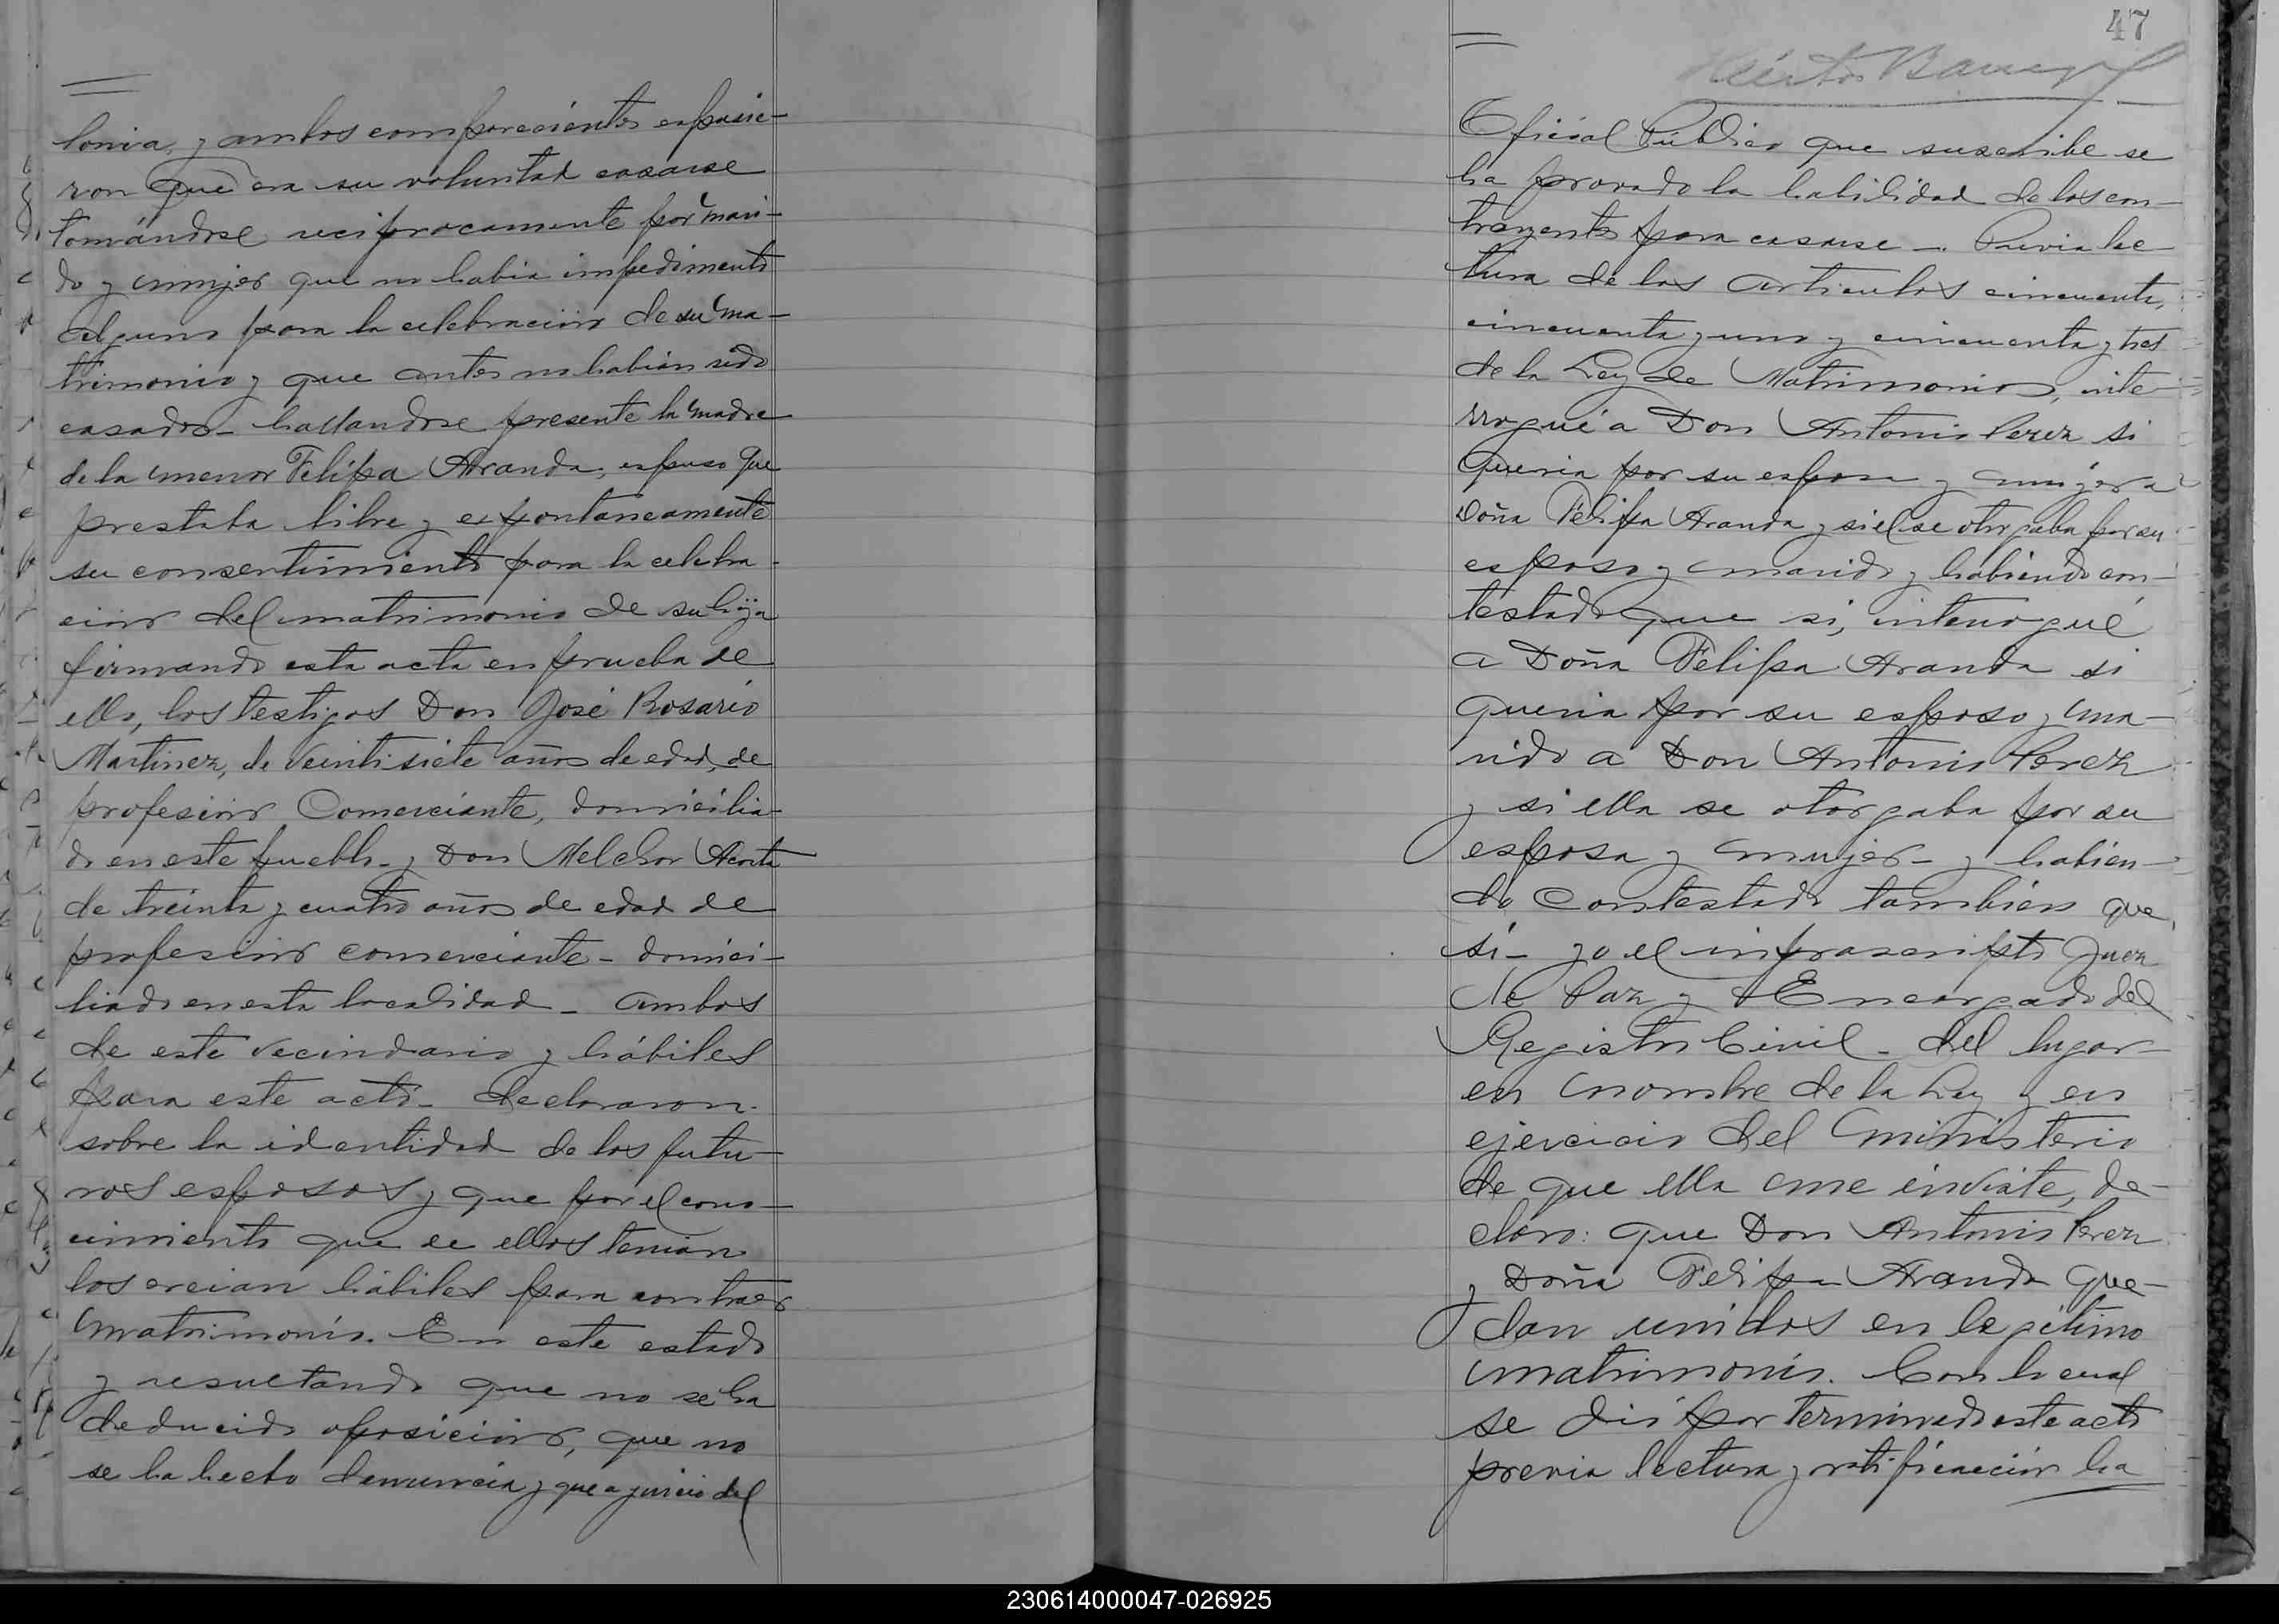 lonia, y ambos comparecientes espusie-
ron que era su voluntad casarse
tomándose reciprocamente por mari-
do y mujer que no habia impedimento
alguno para la celebracion de su ma-
trimonio y que antes no habian sido
casados - hallandose presente la madre
de la menor Felipa Aranda, espuso que
prestaba libre y espontaneamente
su consentimiento para la celebra-
cion del matrimonio de su hija
firmando esta acta en prueba de
ello, los testigos Don José Rosario
Martinez, de veintisiete años de edad, de
profesion Comerciante, domicilia-
do en este pueblo - y Don Melchor Acosta
de treinta y cuatro años de edad de
profesion comerciante - domici-
liado en esta localidad - ambos
de este vecindario y hábiles
para este acto - declararon
sobre la identidad de los futu-
ros esposos y que por el cono-
cimiento que de ellos tenian
los creian hábiles para contraer
matrimonio. En este estado
y resultando que no se ha
deducido oposicion, que no
se ha hecho denuncia y que a juicio del
47
Oficial Público que suscribe se
ha provado la habilidad de los con-
trayentes para casarse - Previa lec-
tura de los articulos cincuenta,
cincuenta y uno y cincuenta y tres
de la Ley de Matrimonio, inte-
rrogué a Don Antonio Perez si
queria por su esposa y mujer a
Doña Felipa Aranda y si el se otorgaba por su
esposo y marido y habiendo con-
testado que si, interrogué
a Doña Felipa Aranda si
queria por su esposo y ma-
rido a Don Antonio Perez
y si ella se otorgaba por su
esposa y mujer - y habien-
do contestado tambien que
si - yo el infrascripto Juez
de Paz y Encargado del
Registro Civil - del lugar
en nombre de la Ley y en
ejercicio del ministerio
de que ella me inviste, de-
claro: que Don Antonio Perez
y Doña Felipa Aranda que-
dan unidos en legitimo
matrimonio. Con lo cual
se dió por terminado este acto
previa lectura y ratificacion ha
230614000047-026925